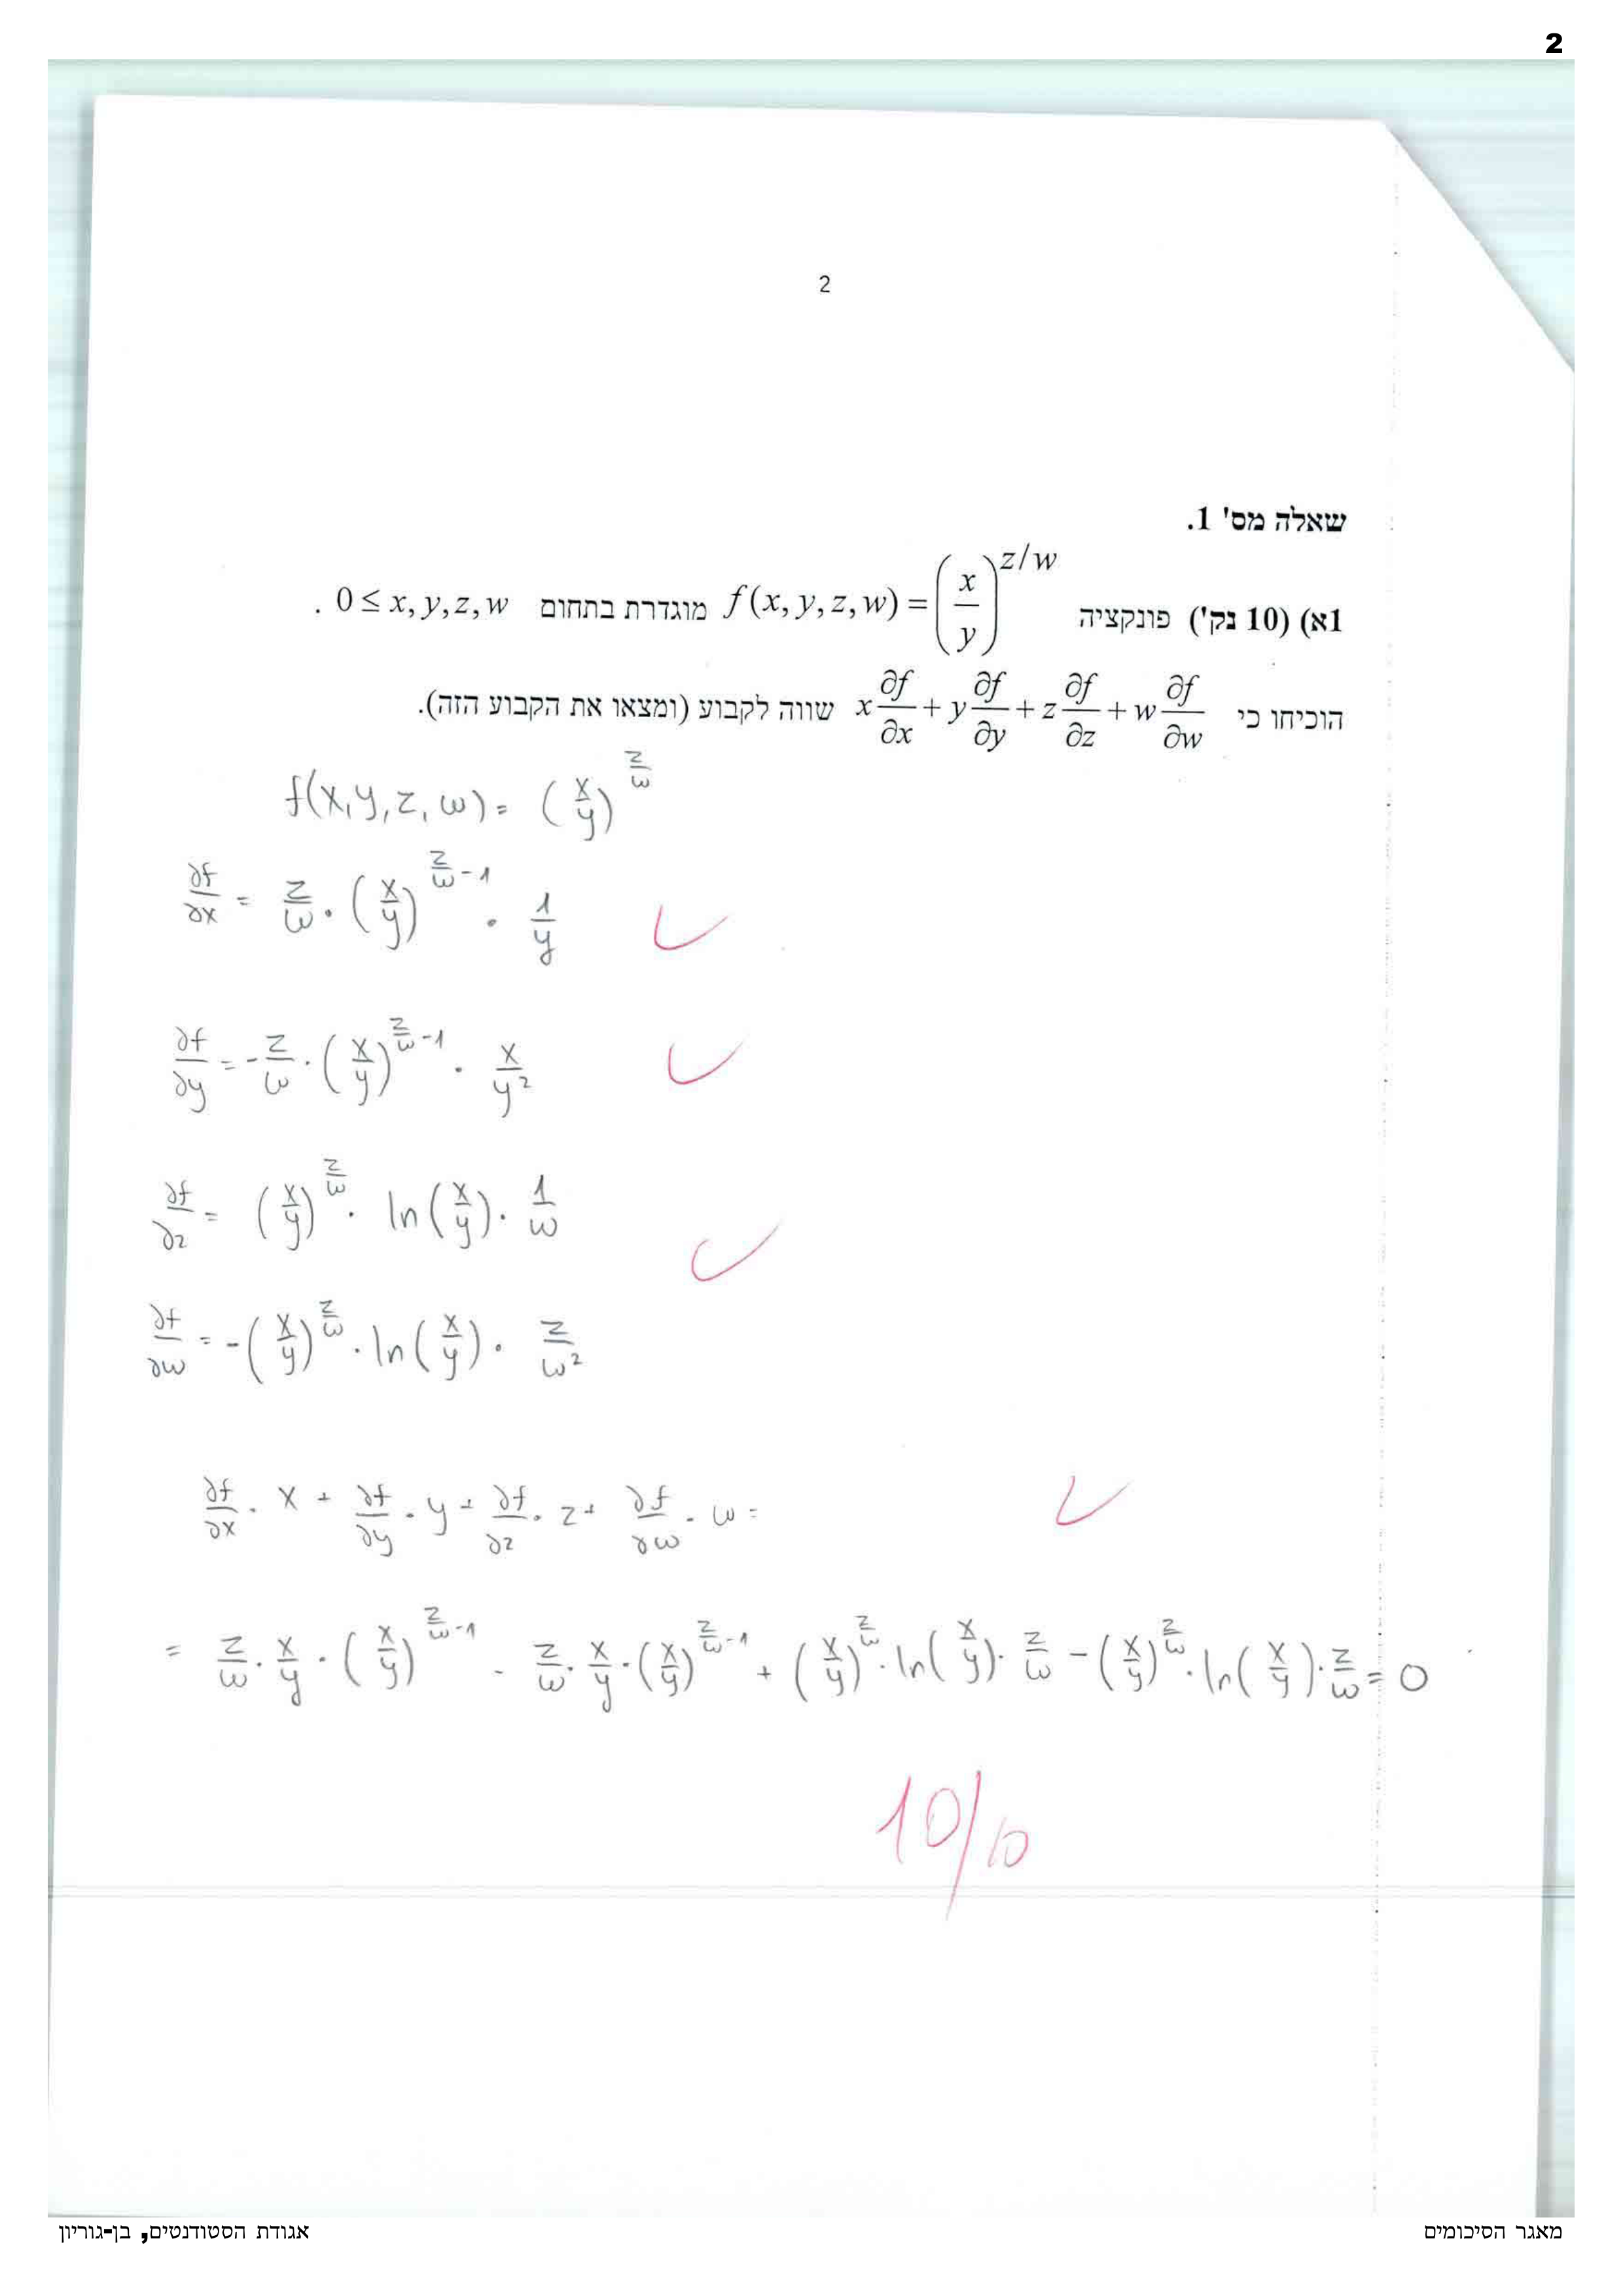 2
2
שאלה מס' 1.
1א) (10 נק') פונקציה f(x, y, z, w) = (x/y)^{z/w} מוגדרת בתחום 0 ≤ x, y, z, w .
הוכיחו כי x ∂f/∂x + y ∂f/∂y + z ∂f/∂z + w ∂f/∂w שווה לקבוע (ומצאו את הקבוע הזה).
f(x,y,z,w) = (x/y)^{z/w}
∂f/∂x = z/w · (x/y)^{z/w - 1} · 1/y
∂f/∂y = - z/w · (x/y)^{z/w - 1} · x/y²
∂f/∂z = (x/y)^{z/w} · ln(x/y) · 1/w
∂f/∂w = -(x/y)^{z/w} · ln(x/y) · z/w²
∂f/∂x · x + ∂f/∂y · y + ∂f/∂z · z + ∂f/∂w · w =
= z/w · x/y · (x/y)^{z/w - 1} - z/w · x/y · (x/y)^{z/w - 1} + (x/y)^{z/w} · ln(x/y) · z/w - (x/y)^{z/w} · ln(x/y) · z/w = 0
10/10
מאגר הסיכומים
אגודת הסטודנטים, בן-גוריון